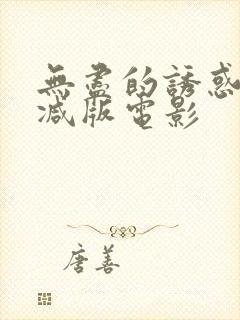 無盡的誘惑
減版電影
唐善